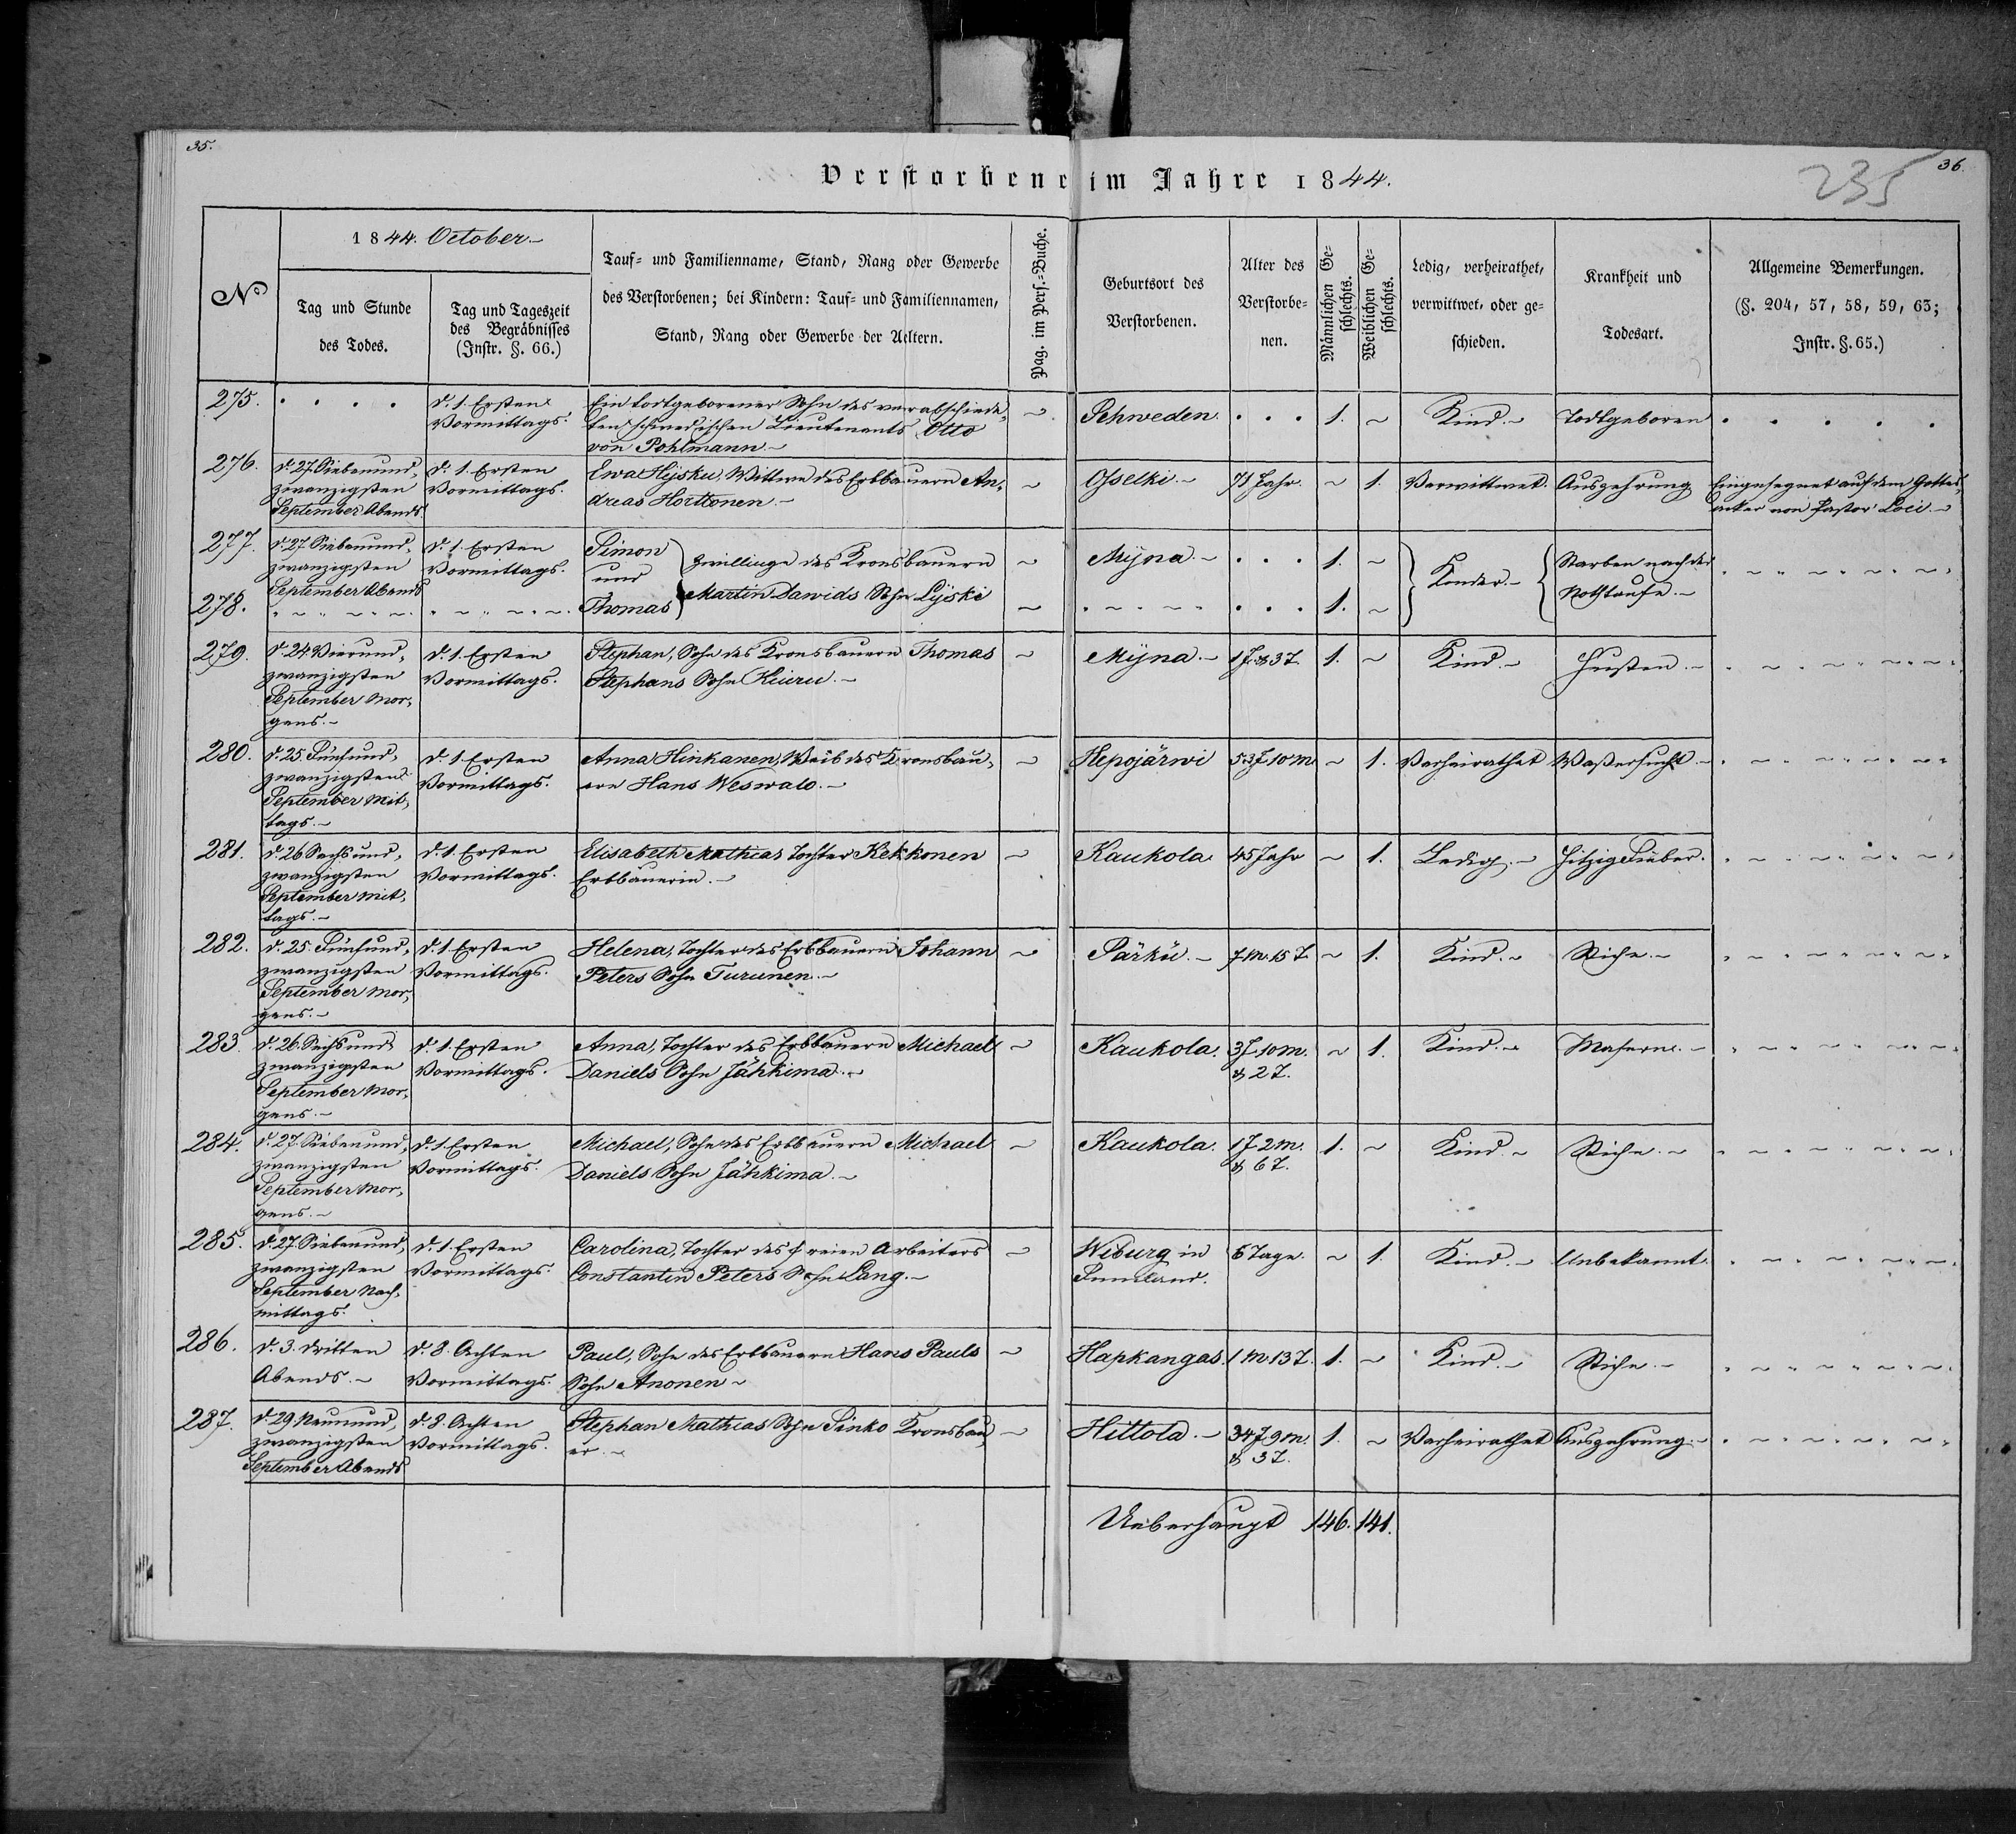 35.
36.
235
Verstorbene im Jahre 1844.
No
1844. October.
Tag und Stunde
des Todes.
Tag und Tageszeit
des Begräbnisses
(Instr. §. 66.)
Tauf- und Familienname, Stand, Rang oder Gewerbe
des Verstorbenen; bei Kindern: Tauf- und Familiennamen,
Stand, Rang oder Gewerbe der Aeltern.
Pag. im Pers.-Buche.
Geburtsort des
Verstorbenen.
Alter des
Verstorbe-
nen.
Männlichen Ge-
schlechts.
Weiblichen Ge-
schlechts.
Ledig, verheirathet,
verwittwet, oder ge-
schieden.
Krankheit und
Todesart.
Allgemeine Bemerkungen.
(§. 204, 57, 58, 59, 63;
Instr. §. 65.)
275. . . . . d. 1. Ersten Ein todtgeborener Sohn des verabschiede- ~ Schweden. . . . 1. ~ Kind.~ Todtgeboren . . . . .
Vormittags. ten schwedischen Lieutenants Otto
von Pohlmann.~
276. d. 27. Siebenund- d. 1. Ersten Ewa Hijsku, Wittwe des Erbbauern An- ~ Osselki.~ 71 Jahr. ~ 1. Verwittwet. Auszehrung Eingesegnet auf dem Gottes-
zwanzigsten Vormittags. dreas Horttonen.~ acker von Pastor Loci.~
September Abends
277. d. 27. Siebenund- d. 1. Ersten Simon Zwillinge des Kronsbauern ~ Mijna.~ . . . 1. ~ Kinder.~ Starben nach der
zwanzigsten Vormittags. und Nothtaufe.~
September Abends
278. Thomas Martin Dawids Sohn Lijski ~ . . . 1. ~
279. d. 24. Vierund- d. 1. Ersten Stephan, Sohn des Kronsbauern Thomas ~ Mijna.~ 1 J. & 3 T. 1. ~ Kind.~ Husten.~
zwanzigsten Vormittags. Stephans Sohn Kiuru.~
September Mor-
gens.~
280. d. 25. Fünfund- d. 1. Ersten Anna Hinkanen, Weib des Kronsbau- ~ Hepojärwi 53 J. 10 M ~ 1. Verheirathet Waßersucht.~
zwanzigsten Vormittags. ern Hans Weswalo.~
September Mit-
tags.~
281. d. 26. Sechsund- d. 1. Ersten Elisabeth Mathias Tochter Kekkonen ~ Kaukola. 45 Jahr ~ 1. Ledig.~ Hitzig Fieber.
zwanzigsten Vormittags. Erbbäuerin.~
September Mit-
tags.~
282. d. 25. Fünfund- d. 1. Ersten Helena, Tochter des Erbbauern Johann ~ Pärkü.~ 7 M. 15 T. ~ 1. Kind.~ Stiche.~
zwanzigsten Vormittags. Peters Sohn Turunen.~
September Mor-
gens.~
283. d. 26. Sechsund- d. 1. Ersten Anna, Tochter des Erbbauern Michael ~ Kaukola. 3 J. 10 M. ~ 1. Kind.~ Masern.~
zwanzigsten Vormittags. Daniels Sohn Jähkimä.~ & 2 T.
September Mor-
gens.~
284. d. 27. Siebenund- d. 1. Ersten Michael, Sohn des Erbbauern Michael ~ Kaukola. 1 J. 2 M. 1. ~ Kind.~ Stiche.~
zwanzigsten Vormittags. Daniels Sohn Jähkimä.~ & 6 T.
September Mor-
gens.~
285. d. 27. Siebenund- d. 1. Ersten Carolina, Tochter des freien Arbeiters ~ Wiburg in 6 Tage. ~ 1. Kind.~ Unbekannt.
zwanzigsten Vormittags. Constantin Peters Sohn Lang.~ Finnland.
September Nach-
mittags.
286. d. 3. Dritten d. 8. Achten Paul, Sohn des Erbbauern Hans Pauls ~ Hapkangas. 1 M. 13 T. 1. ~ Kind.~ Stiche.~
Abends.~ Vormittags. Sohn Anonen~
287. d. 29. Neunund- d. 8. Achten Stephan Mathias Sohn Sinko Kronsbau- ~ Hittola.~ 34 J. 9 M. 1. ~ Verheirathet Auszehrung.~
zwanzigsten Vormittags. er.~ & 3 T.
September Abends
Ueberhaupt 146. 141.